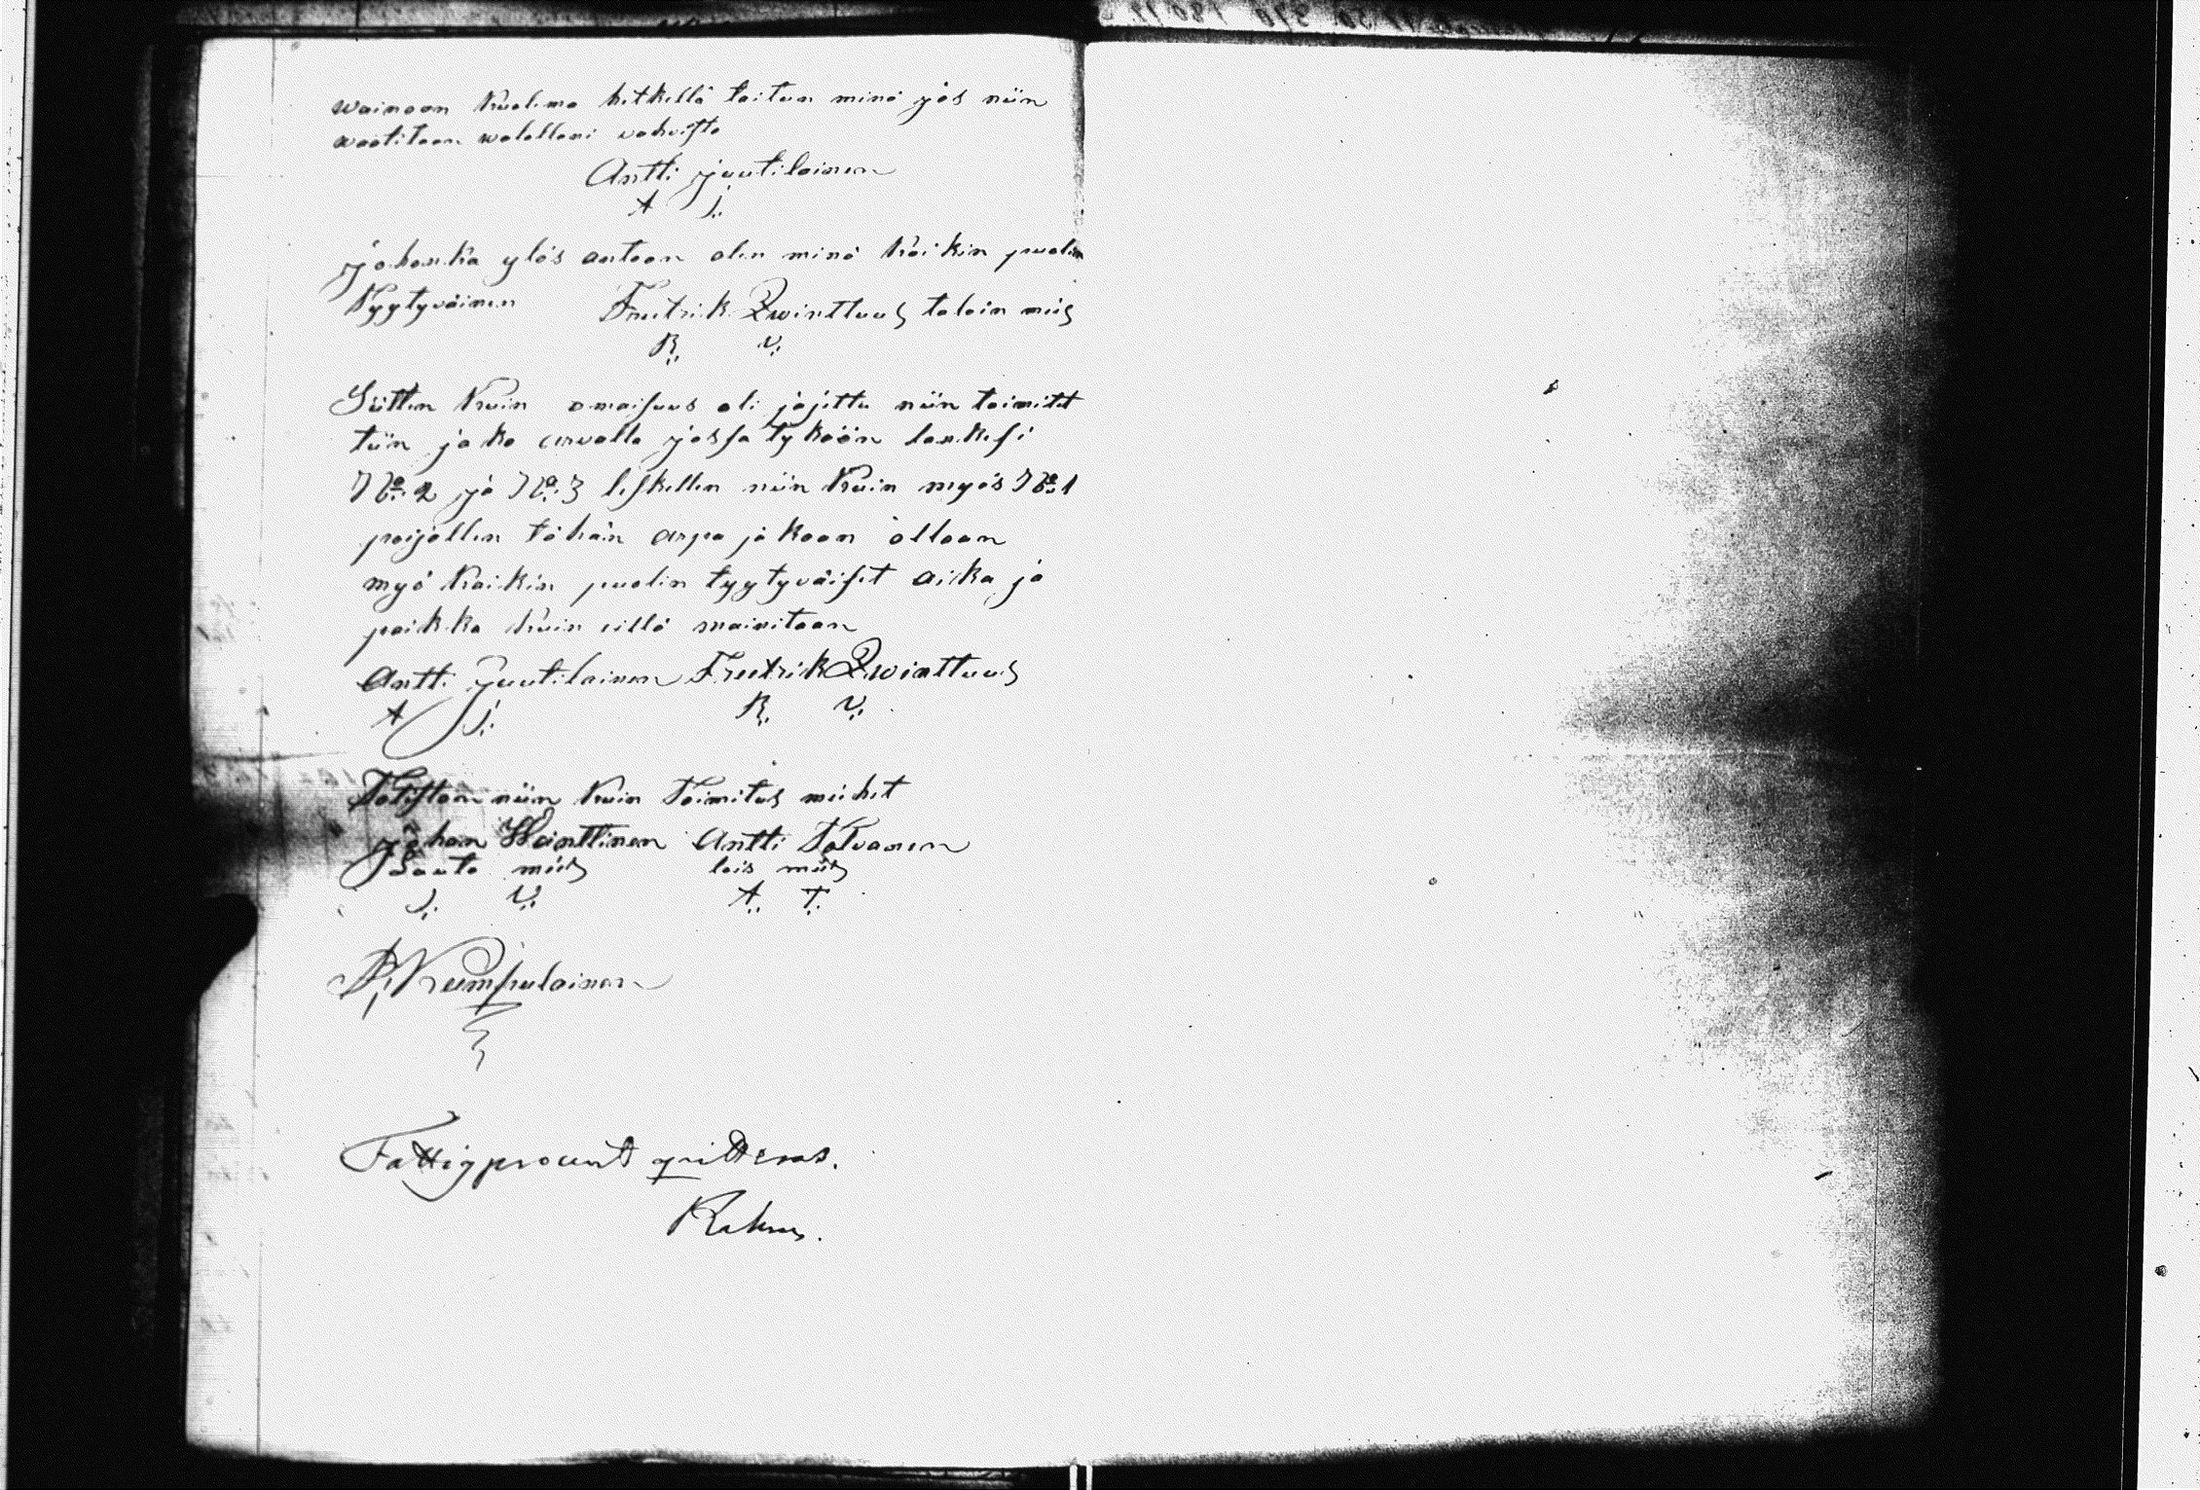 wainaan kuolema hetkellä taitan minä jos niin
waatitaan walallani vahvista
Antti Juutilainen
A J:
johonka ylös antoon olen minä kaikin puolin
Tyytyväinen Freetrik Qwinttuus taloin mies
R: V:
Sitten kuin omaisuus oli jajittu niin toimitet
tiin jako arvalla jossa tykään lankesi
No: 2 ja No: 3 leskellen niin kuin myös No: 1
pojallen tähän arpa jakoon ollaan
myö kaikin puolin tyytyväiset aika ja
paikka kuin eillä mainitaan
Antti Juutilainen Freetrik Qwinttuus
A J: R: V:
Totistaan niin kuin Toimitus miehet
Johan Wänttinen Antti Tolvanen
Lauta mies lois mies
J: V: A: T:
P. Kumpulainen
Fattigprocent qvitteras.